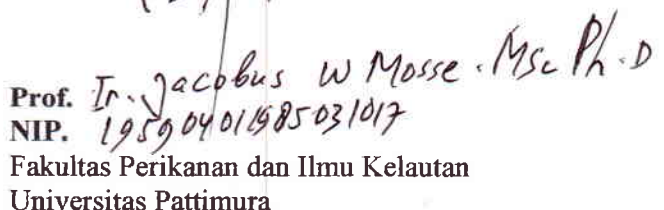 Prof. Ir. Jacobus W Mosse. MSc Ph.D
NIP. 195904011985031017
Fakultas Perikanan dan Ilmu Kelautan
Universitas Pattimura